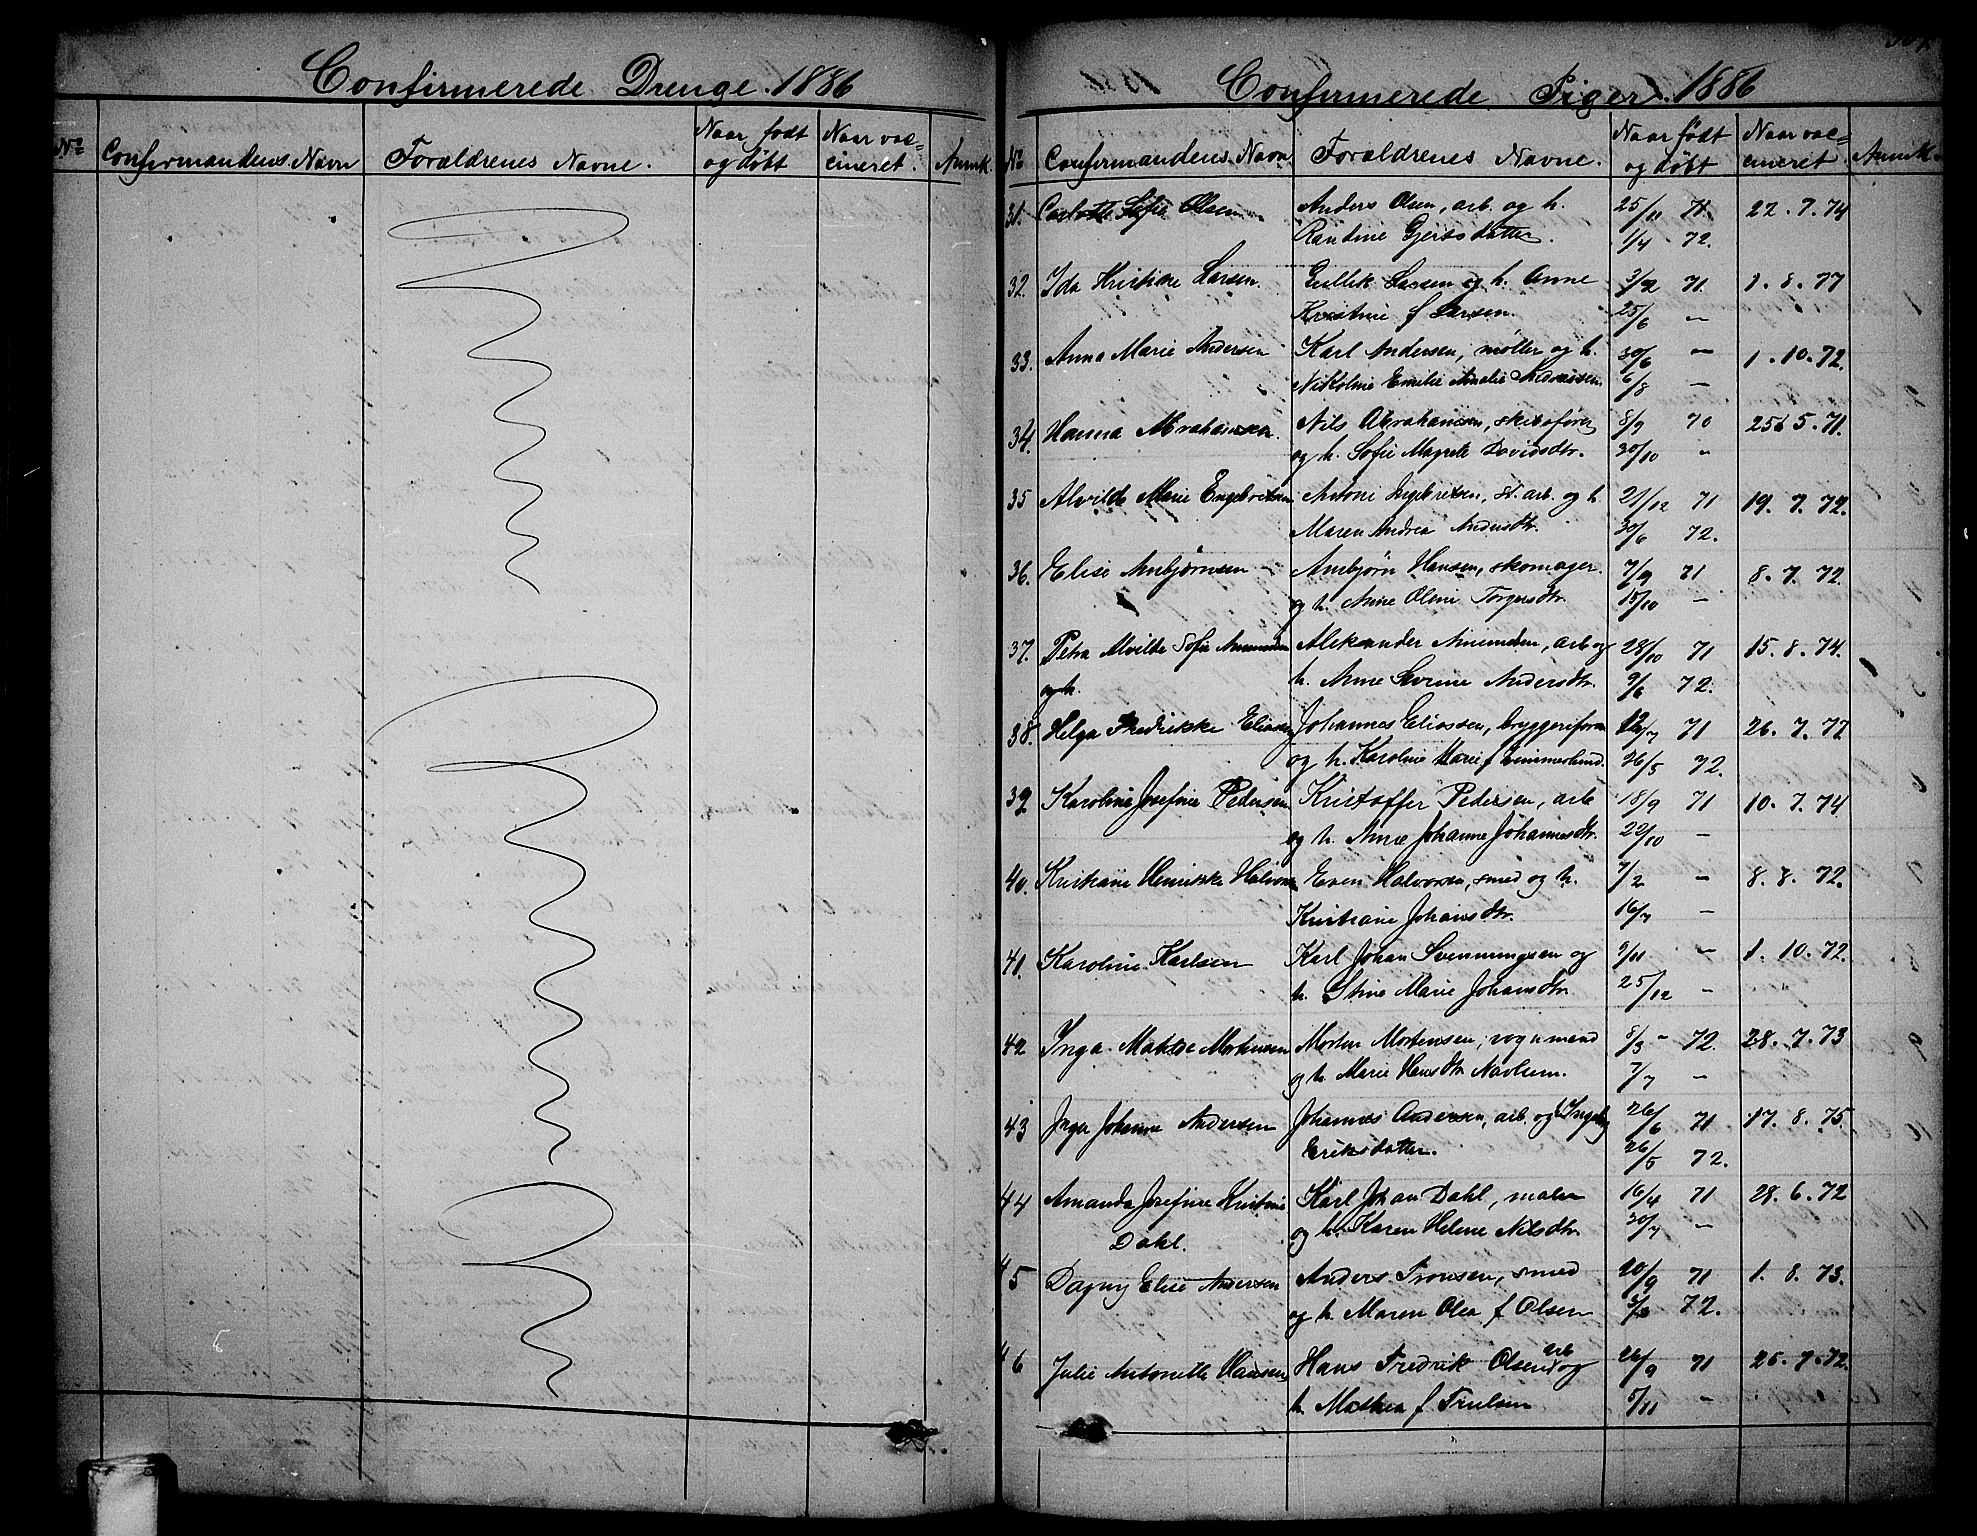 Confirmerede Drenge. 1886
No Confirmandens Navn Forældrenes Navne. Naar født og døbt Naar vaccineret. Anmk.
Confirmerede Piger. 1886
No Confirmandens Navn Forældrenes Navne. Naar født og døbt Naar vaccineret Anmk.
31. Sofie Olsen Anders Olsen, arb. og h. 25/11 71. 22. 7. 74
Randine Gjertsdatter. 1/4 72.
32. Ida Kristine Larsen Gullik Larsen og h. Anne 3/2 71. 1. 8. 77
Kristine f Larsen. 25/6 —
33. Anna Marie Andersen Karl Andersen, møller og h. 30/6 — 1. 10. 72.
Nikoline Emilie Amalie 6/8 —
34. Hanna Abrahamsen. Nils Abrahamsen, skibsfører 8/9 70 5. 71.
og h. Sofie Magrete Davidsdtr. 30/10 "
35 Alvilde Marie Engebretsen Antoni Ingebretsen, st. arb. og h. 21/12 71 19. 7. 72.
Maren Andrea Andersdtr. 30/6 72.
36. Elise Anbjørnsen Anbjørn Hansen, skomager. 7/9 71 8. 7. 72
og h. Anne Oline Torgersdtr. 15/10 —
37. Petra Alvilde Sofie Amundsen Aleksander Amundsen, arb og 28/10 71 15. 8. 74.
og h. h. Anne Severine Andersdtr. 9/6 72.
38. Helga Fredrikke Eliassen Johannes Eliassen, bryggeriform 12/7 71 26. 7. 77
og h. Karoline Marie f 26/5 72.
39 Karoline Josefine Pedersen Kristoffer Pedersen, arb 18/9 71 10. 7. 74
og h. Anne Johanne Johannesdtr. 22/10 —
40. Kristiane Henrikke Halvorsen Even Halvorsen, smed og h. 7/2 — 8. 8. 72.
Kristiane Johansdtr. 16/7 —
41. Karoline Karlsen Karl Johan Svenningsen og 9/11 — 1. 10. 72.
h. Stine Marie Johansdtr 25/12 —
42 Inga Matilde Mortensen Morten Mortensen, vognmand 8/3 - 72. 28. 7. 73
og h. Marie Hansdtr Navlum. 7/7 —
43 Inga Johanne Andersen Johannes Andersen, arb. og h Ingeborg 26/6 71 17. 8. 75.
Eriksdatter. 26/5 72.
44 Amanda Josefine Kristine Karl Johan Dahl, maler 16/4 71 28. 6. 72
Dahl. og h. Karen Helene Nilsdtr. 30/7 —
45 Dagny Elise Andersen Anders Tronsen, smed 20/9 71 1. 8. 73.
og h. Maren Olea f Olsen 72.
46 Julie Antonette Hansen Hans Fredrik Olsen arb og 26/9 71 25. 7. 72.
h. Mathea f Trulsen 5/11 —